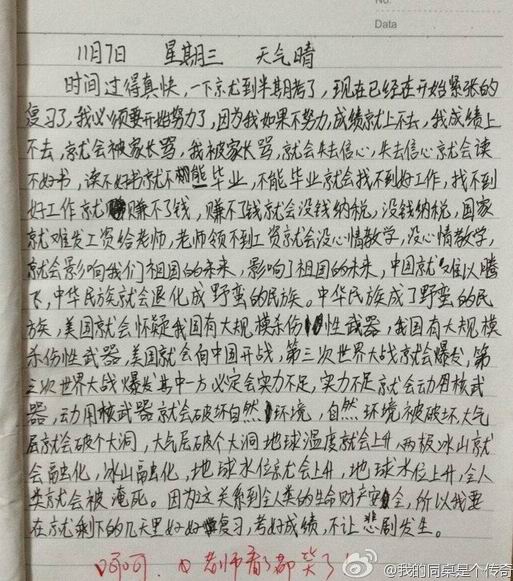 No.
Data
11月7日 星期三 天气晴
时间过得真快,一下就到半期考了,现在已经在开始紧张的
复习了,我必须要开始努力了,因为我如果不努力,成绩就上不去,我成绩上
不去,就会被家长骂,我被家长骂,就会失去信心,失去信心就会读
不好书,读不好书就不能毕业,不能毕业就会找不到好工作,找不到
好工作就赚不了钱,赚不了钱就会没钱纳税,没钱纳税,国家
就难发工资给老师,老师领不到工资就会没心情教学,没心情教学,
就会影响我们祖国的未来,影响了祖国的未来,中国就难以腾
飞,中华民族就会退化成野蛮的民族。中华民族成了野蛮的民
族,美国就会怀疑我国有大规模杀伤性武器,我国有大规模
杀伤性武器,美国就会向中国开战,第三次世界大战就会爆发,第
三次世界大战爆发其中一方必定会实力不足,实力不足就会动用核武
器,动用核武器就会破坏自然环境,自然环境被破坏,大气
层就会破个大洞,大气层破个大洞地球温度就会上升,两极冰山就
会融化,冰山融化,地球水位就会上升,地球水位上升,全人
类就会被淹死。因为这关系到全人类的生命财产安全,所以我要
在就剩下的几天里好好复习,考好成绩,不让悲剧发生。
呵呵,老师看了都笑了!
@我的同桌是个传奇